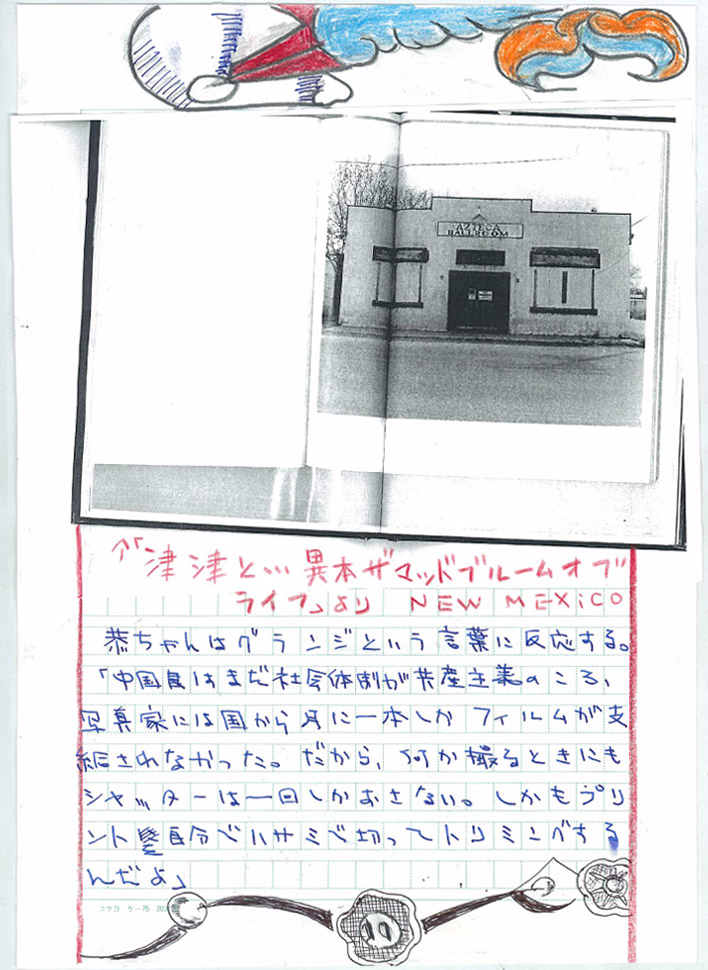 AZTECA
BALLROOM
「津津と…異本ザマッドブルームオブ
ライフ」より NEW MEXiCO
恭ちゃんはグランジという言葉に反応する。
「中国はまだ社会体制が共産主義のころ、
写真家には国から月に一本しかフィルムが支
給されなかった。だから、何か撮るときにも
シャッターは一回しかおさない。しかもプリ
ント自分でハサミで切ってトリミングする
んだよ」
コクヨ ケー75 20
10